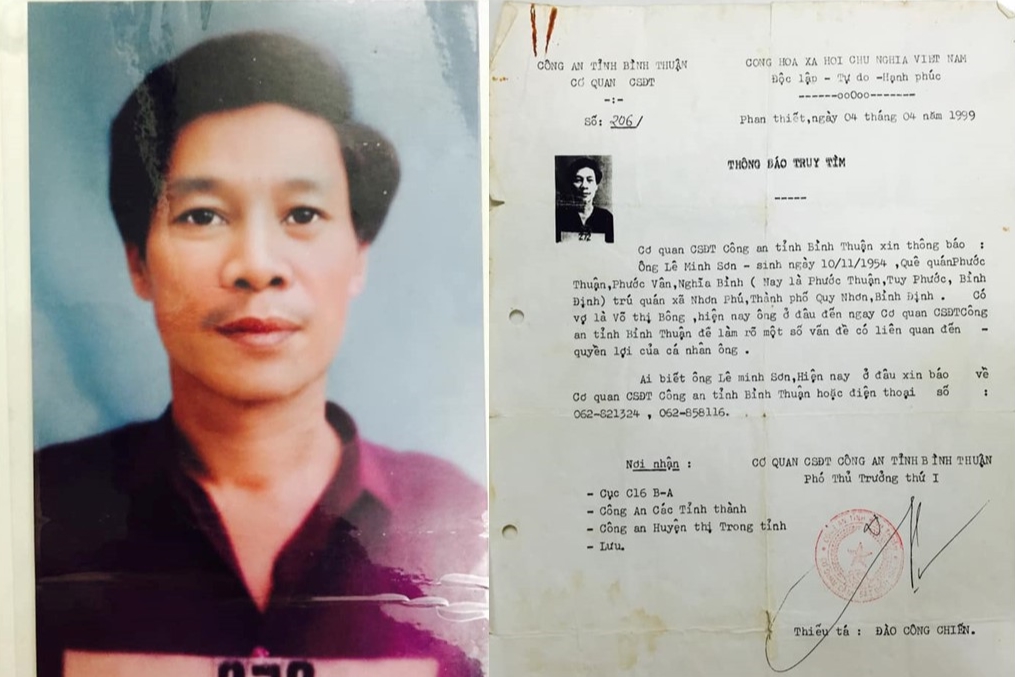 CÔNG AN TỈNH BÌNH THUẬN
CƠ QUAN CSĐT
-:-
Số: 206/
CONG HOA XA HOI CHU NGHIA VIET NAM
Độc lập - Tự do -Hạnh phúc
------ooOoo-------
Phan thiết,ngày 04 tháng 04 năm 1999
THÔNG BÁO TRUY TÌM
-----
272
Cơ quan CSĐT Công an tỉnh Bình Thuận xin thông báo :
Ông Lê Minh Sơn - sinh ngày 10/11/1954 ,Quê quánPhước
Thuận,Phước Vân,Nghĩa Bình ( Nay là Phước Thuận,Tuy Phước, Bình
Định) trú quán xã Nhơn Phú,Thành phố Quy Nhơn,Bình Định . Có
vợ là Võ thị Bông ,hiện nay ông ở đâu đến ngay Cơ quan CSĐTCông
an tỉnh Bình Thuận để làm rõ một số vấn đề có liên quan đến -
quyền lợi của cá nhân ông .
Ai biết ông Lê minh Sơn,Hiện nay ở đâu xin báo về
Cơ quan CSĐT Công an tỉnh Bình Thuận hoặc điện thoại số :
062-821324 , 062-858116.
Nơi nhận :
- Cục C16 B-A
- Công An Các Tỉnh thành
- Công an Huyện thị Trong tỉnh
- Lưu.
CƠ QUAN CSĐT CÔNG AN TỈNH BÌNH THUẬN
Phó Thủ Trưởng thứ I
Thiếu tá : ĐÀO CÔNG CHIẾN.